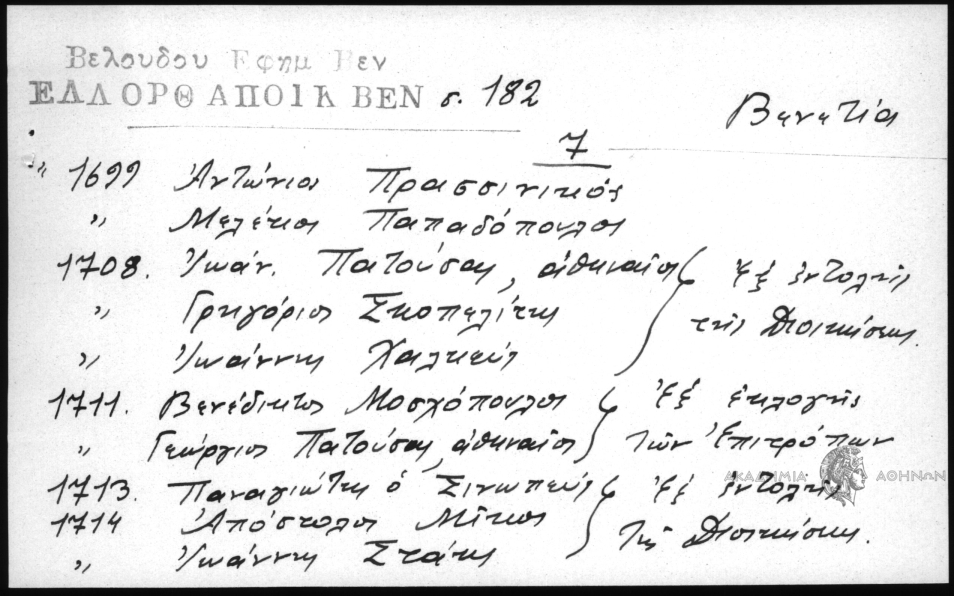 Βελουδου Εφημ Βεν
ΕΛΛ ΟΡΘ ΑΠΟΙΚ ΒΕΝ σ. 182
Βενετία
7
" 1699 Ἀντώνιος Πρασσινικός
" Μελέτιος Παπαδόπουλος
1708. Ἰωάν. Πατούσας, ἀθηναῖος } Ἐξ ἐντολῆς
" Γρηγόριος Σκοπελίτης τῆς Διοικήσεως.
" Ἰωάννης Χαλκεύς
1711. Βενέδικτος Μοσχόπουλος } Ἐξ ἐκλογῆς
" Γεώργιος Πατούσας, ἀθηναῖος τῶν Ἐπιτρόπων
ΑΚΑΔΗΜΙΑ ΑΘΗΝΩΝ
1713. Παναγιώτης ὁ Σινωπεύς } Ἐξ ἐντολῆς
1714 Ἀπόστολος Μῖκος τῆς Διοικήσεως.
" Ἰωάννης Στάης